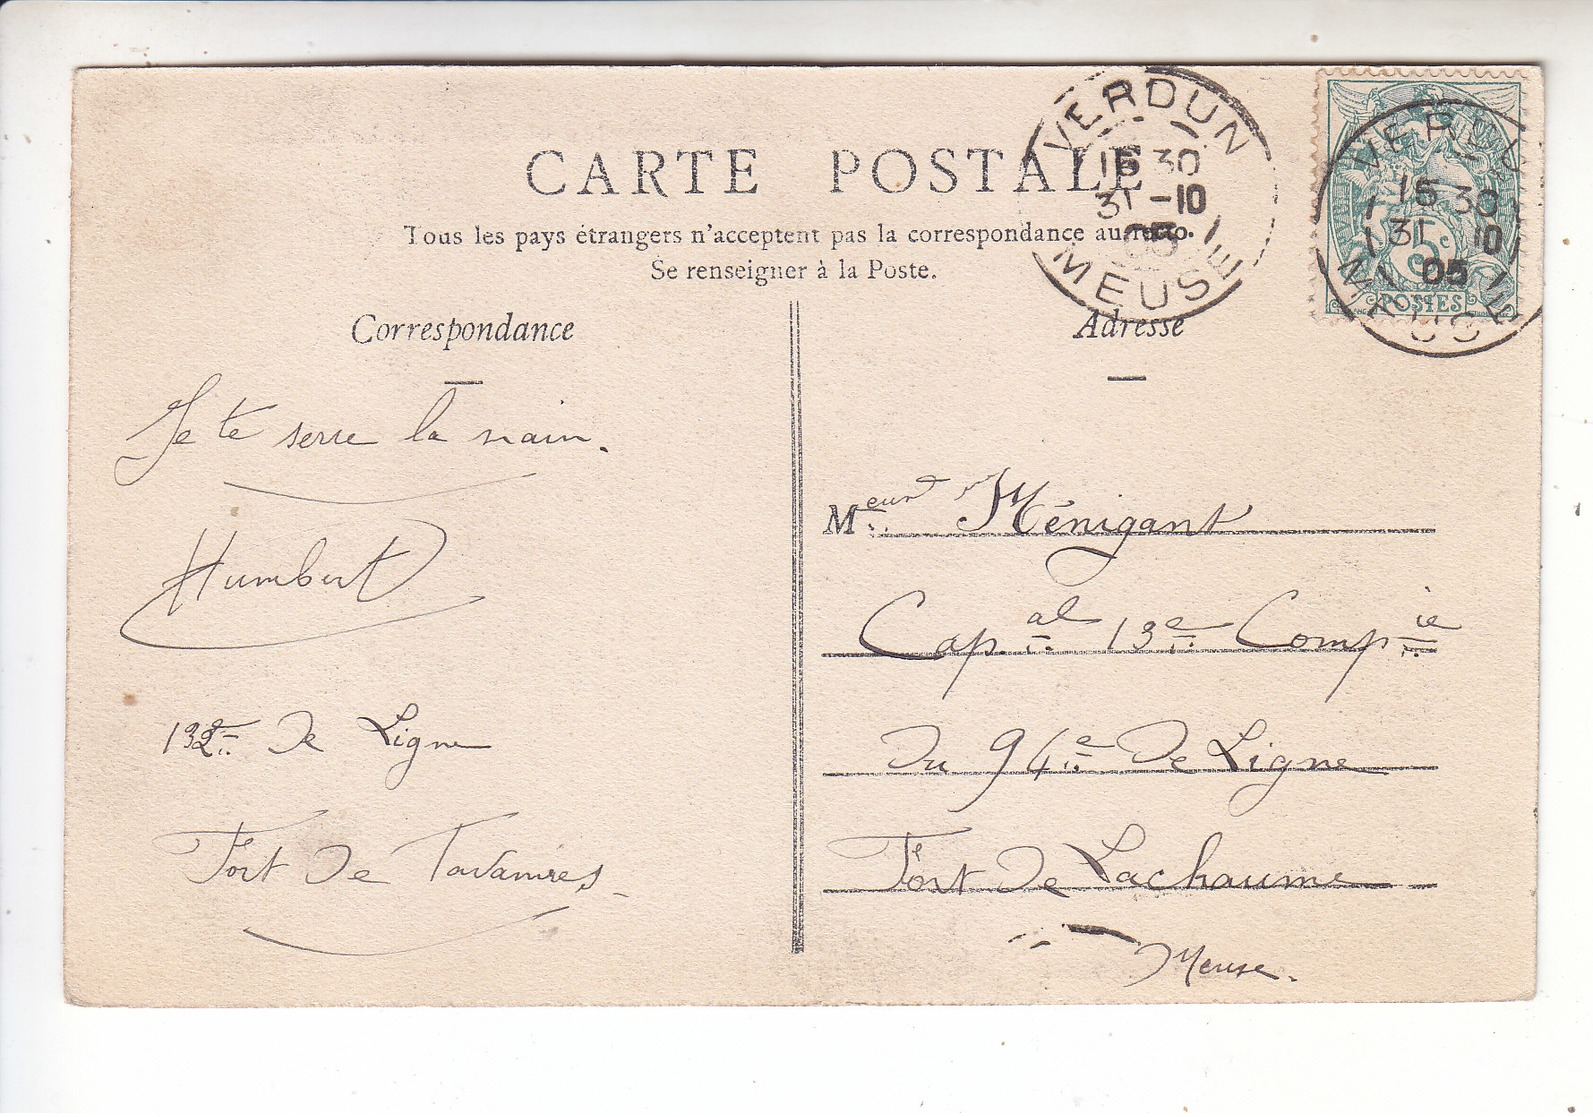 CARTE POSTALE
Tous les pays étrangers n'acceptent pas la correspondance au recto.
Se renseigner à la Poste.
VERDUN
15 30
31 -10
05
MEUSE
VERDUN
15 30
31 10
05
MEUSE
5c
POSTES
Correspondance
Je te serre la main.
Humbert
132e de Ligne
Fort de Tavannes
Adresse
Meur Ménigant
Capal 13e Compie
Du 94e de Ligne
Fort de Lachaume
Meuse.